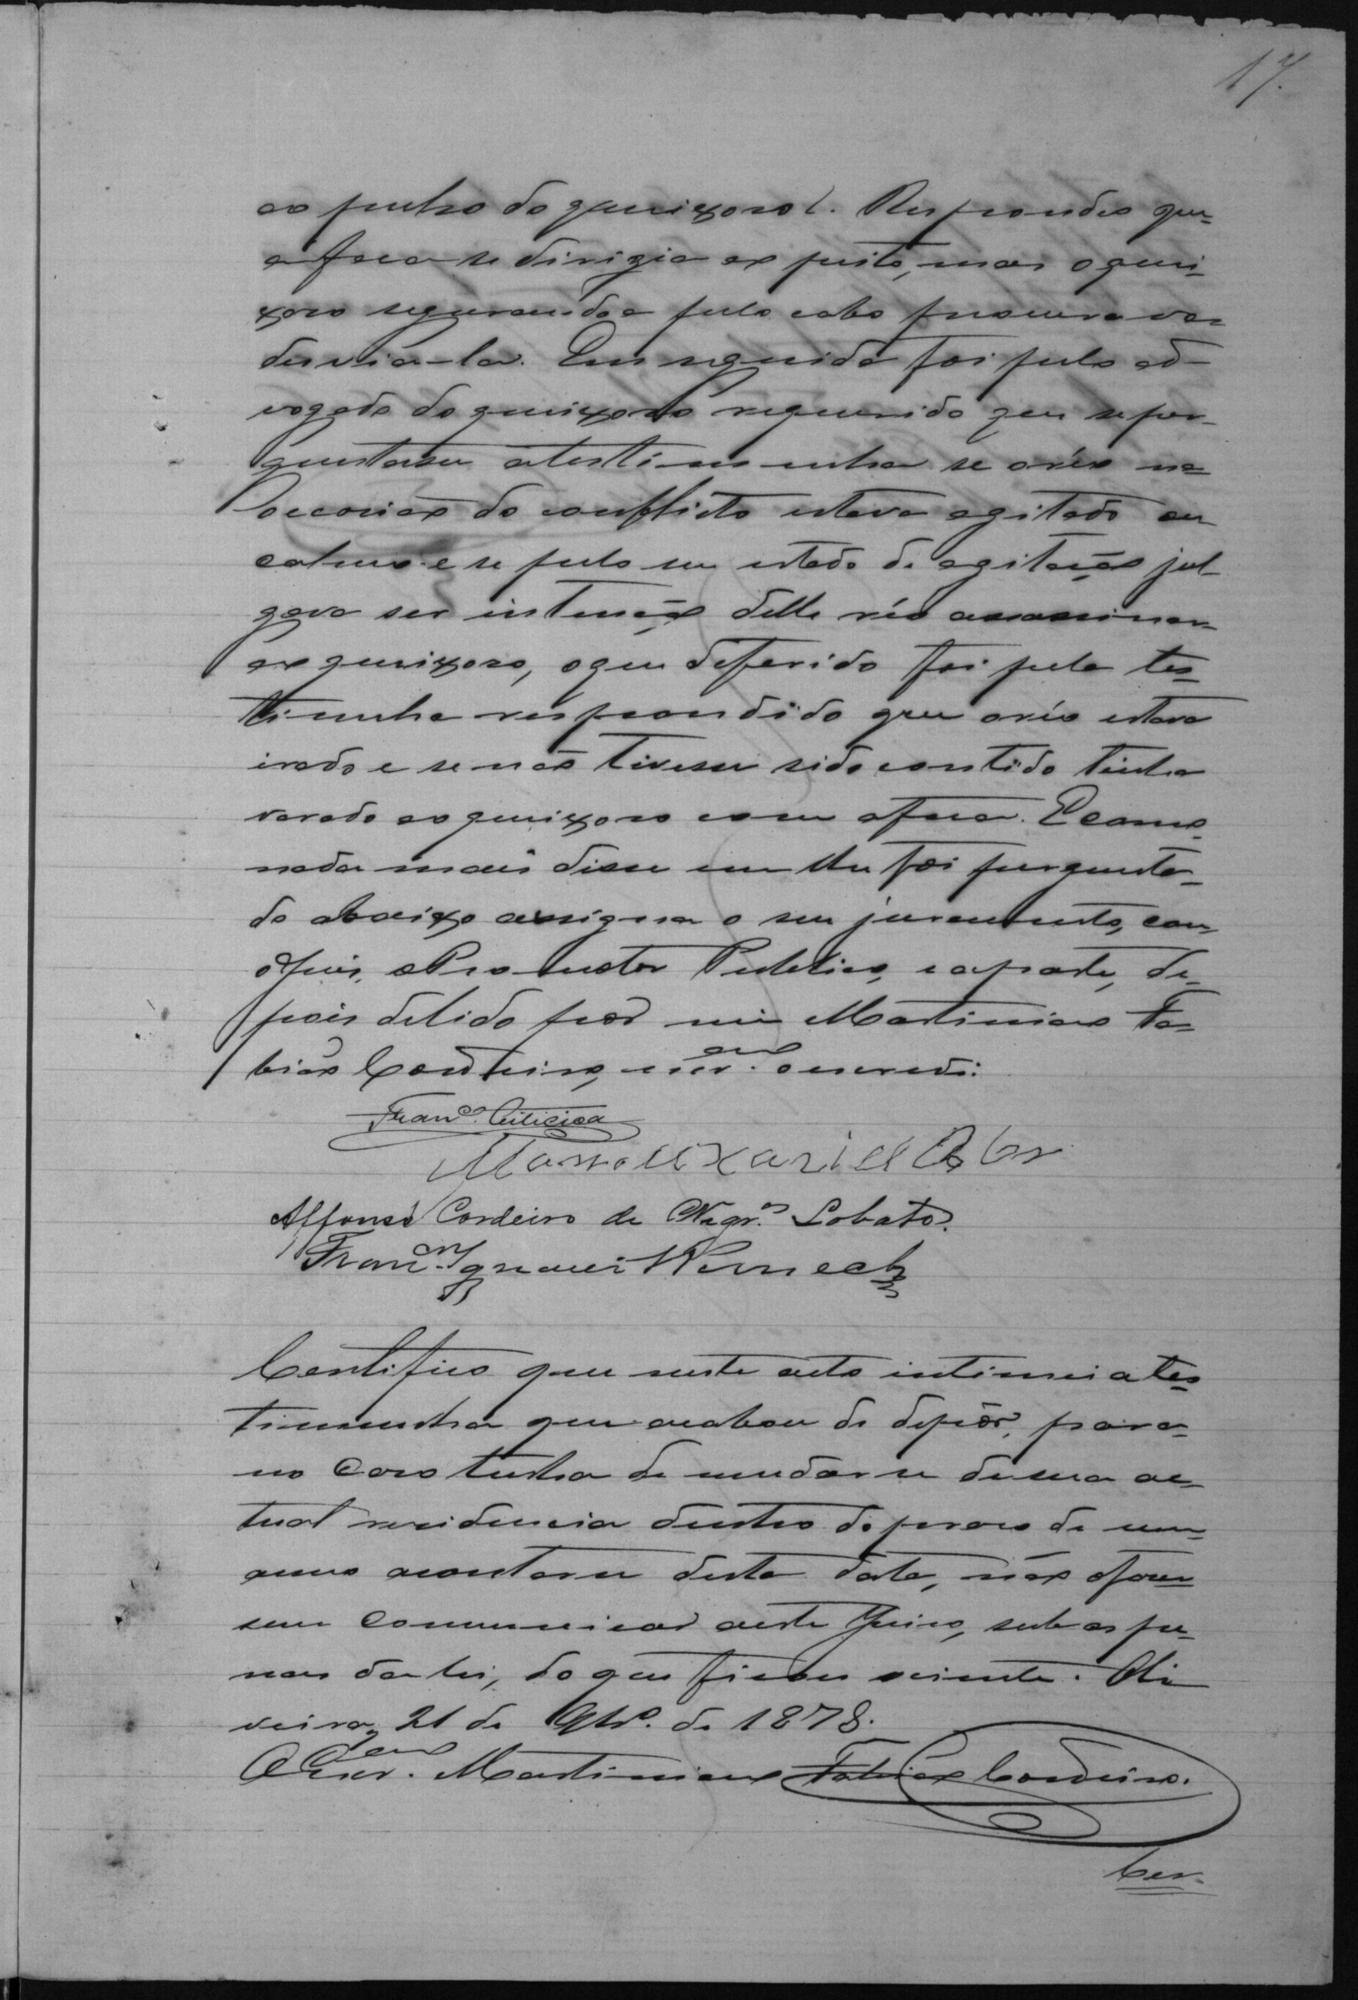 17.
ao peito do queixoso?. Respondeo que
a faca se dirigia ao peito, mas o quei-
xoso segurando-a pelo cabo procurava
desvia-la. Em seguida foi pelo ad-
vogado do queixoso requerido que se per-
guntasse a testimunha se o réo na
occasião do conflicto estava agitado ou
calmo e se pelo seu estado de agitação jul-
gava ser intenção delle réo assassinar
ao queixoso, o que deferido foi pela tes-
timunha respondido que o réo estava
irado e se não tivesse sido contido tinha
varado ao queixoso com a faca. E como
nada mais disse nem lhe foi pergunta-
do abaixo assigna o seu juramento, com
o Juis, o Promotor Publico, e a parte, de-
pois de lido por mim Martiniano Fa-
bião Cordeiro, escr.am o escrevi.
Fran.co
Manoel Xaviel
Affonso Cordeiro de Negr.os Lobato.
Fran.co Ignacio Werneck
Certifico que neste acto intimei a tes-
timunha que acabou de depôr, para
no caso tenha de mudar-se de sua ac-
tual residencia dentro do praso de um
anno a contar-se desta data, não o faça
sem communicar a este Juiso, sub as pe-
nas da lei, do que ficou sciente. Oli-
veira, 21 de 9br.o de 1878.
O Escr.am Martiniano Fabião Cordeiro.
Cer-